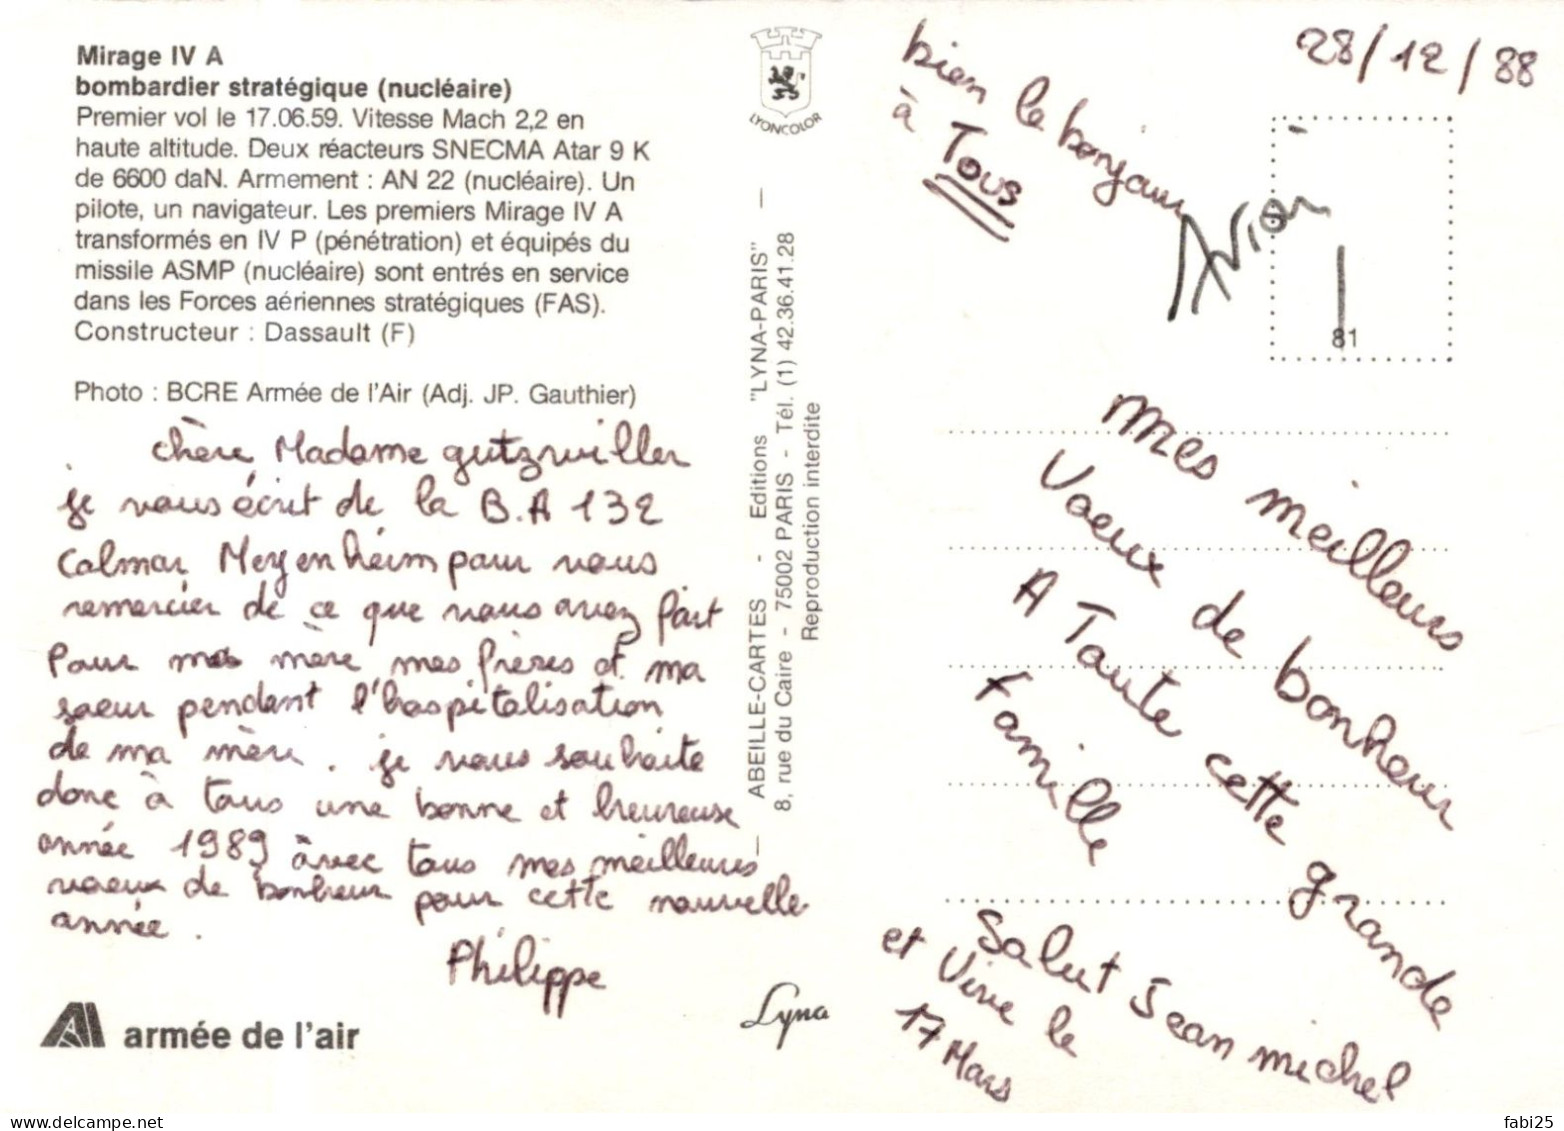 Mirage IV A
bombardier stratégique (nucléaire)
Premier vol le 17.06.59. Vitesse Mach 2,2 en
haute altitude. Deux réacteurs SNECMA Atar 9 K
de 6600 daN. Armement : AN 22 (nucléaire). Un
pilote, un navigateur. Les premiers Mirage IV A
transformés en IV P (pénétration) et équipés du
missile ASMP (nucléaire) sont entrés en service
dans les Forces aériennes stratégiques (FAS).
Constructeur : Dassault (F)
Photo : BCRE Armée de l'Air (Adj. JP. Gauthier)
chère Madame gutzwiller
je vous écrit de la B.A 132
Colmar Meyenheim pour vous
remercier de ce que vous avez fait
pour ma mère mes frères et ma
soeur pendant l'hospitalisation
de ma mère. je vous souhaite
donc à tous une bonne et heureuse
année 1989 avec tous mes meilleures
voeux de bonheur pour cette nouvelle
année.
Philippe
armée de l'air
LYONCOLOR
ABEILLE-CARTES - Editions "LYNA-PARIS"
8, rue du Caire - 75002 PARIS - Tél. (1) 42.36.41.28
Reproduction interdite
Lyna
28/12/88
bien le bonjour
à Tous
Avion
81
Mes meilleurs
Voeux de bonheur
A Toute cette grande
Famille
Salut Jean michel
et Vive le
17 Mars
fabi25